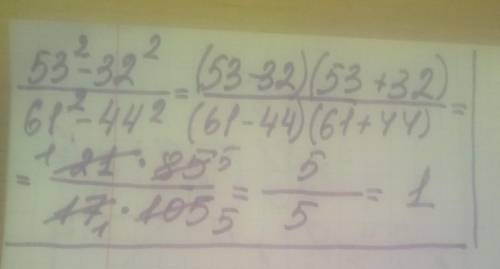 53² - 32² / 61² - 44² = (53 - 32)(53 + 32) / (61 - 44)(61 + 44) =
= 1 21 · 85 5 / 17 1 · 105 5 = 5 / 5 = 1